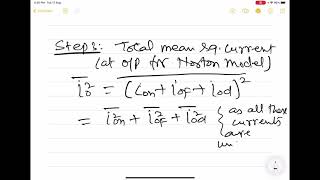 Step 8: Total mean sq. current
(at o/p for Norton model)
i_o² = (i_on + i_of + i_od)²
= i_on² + i_of² + i_od² { as all these
currents
are
un